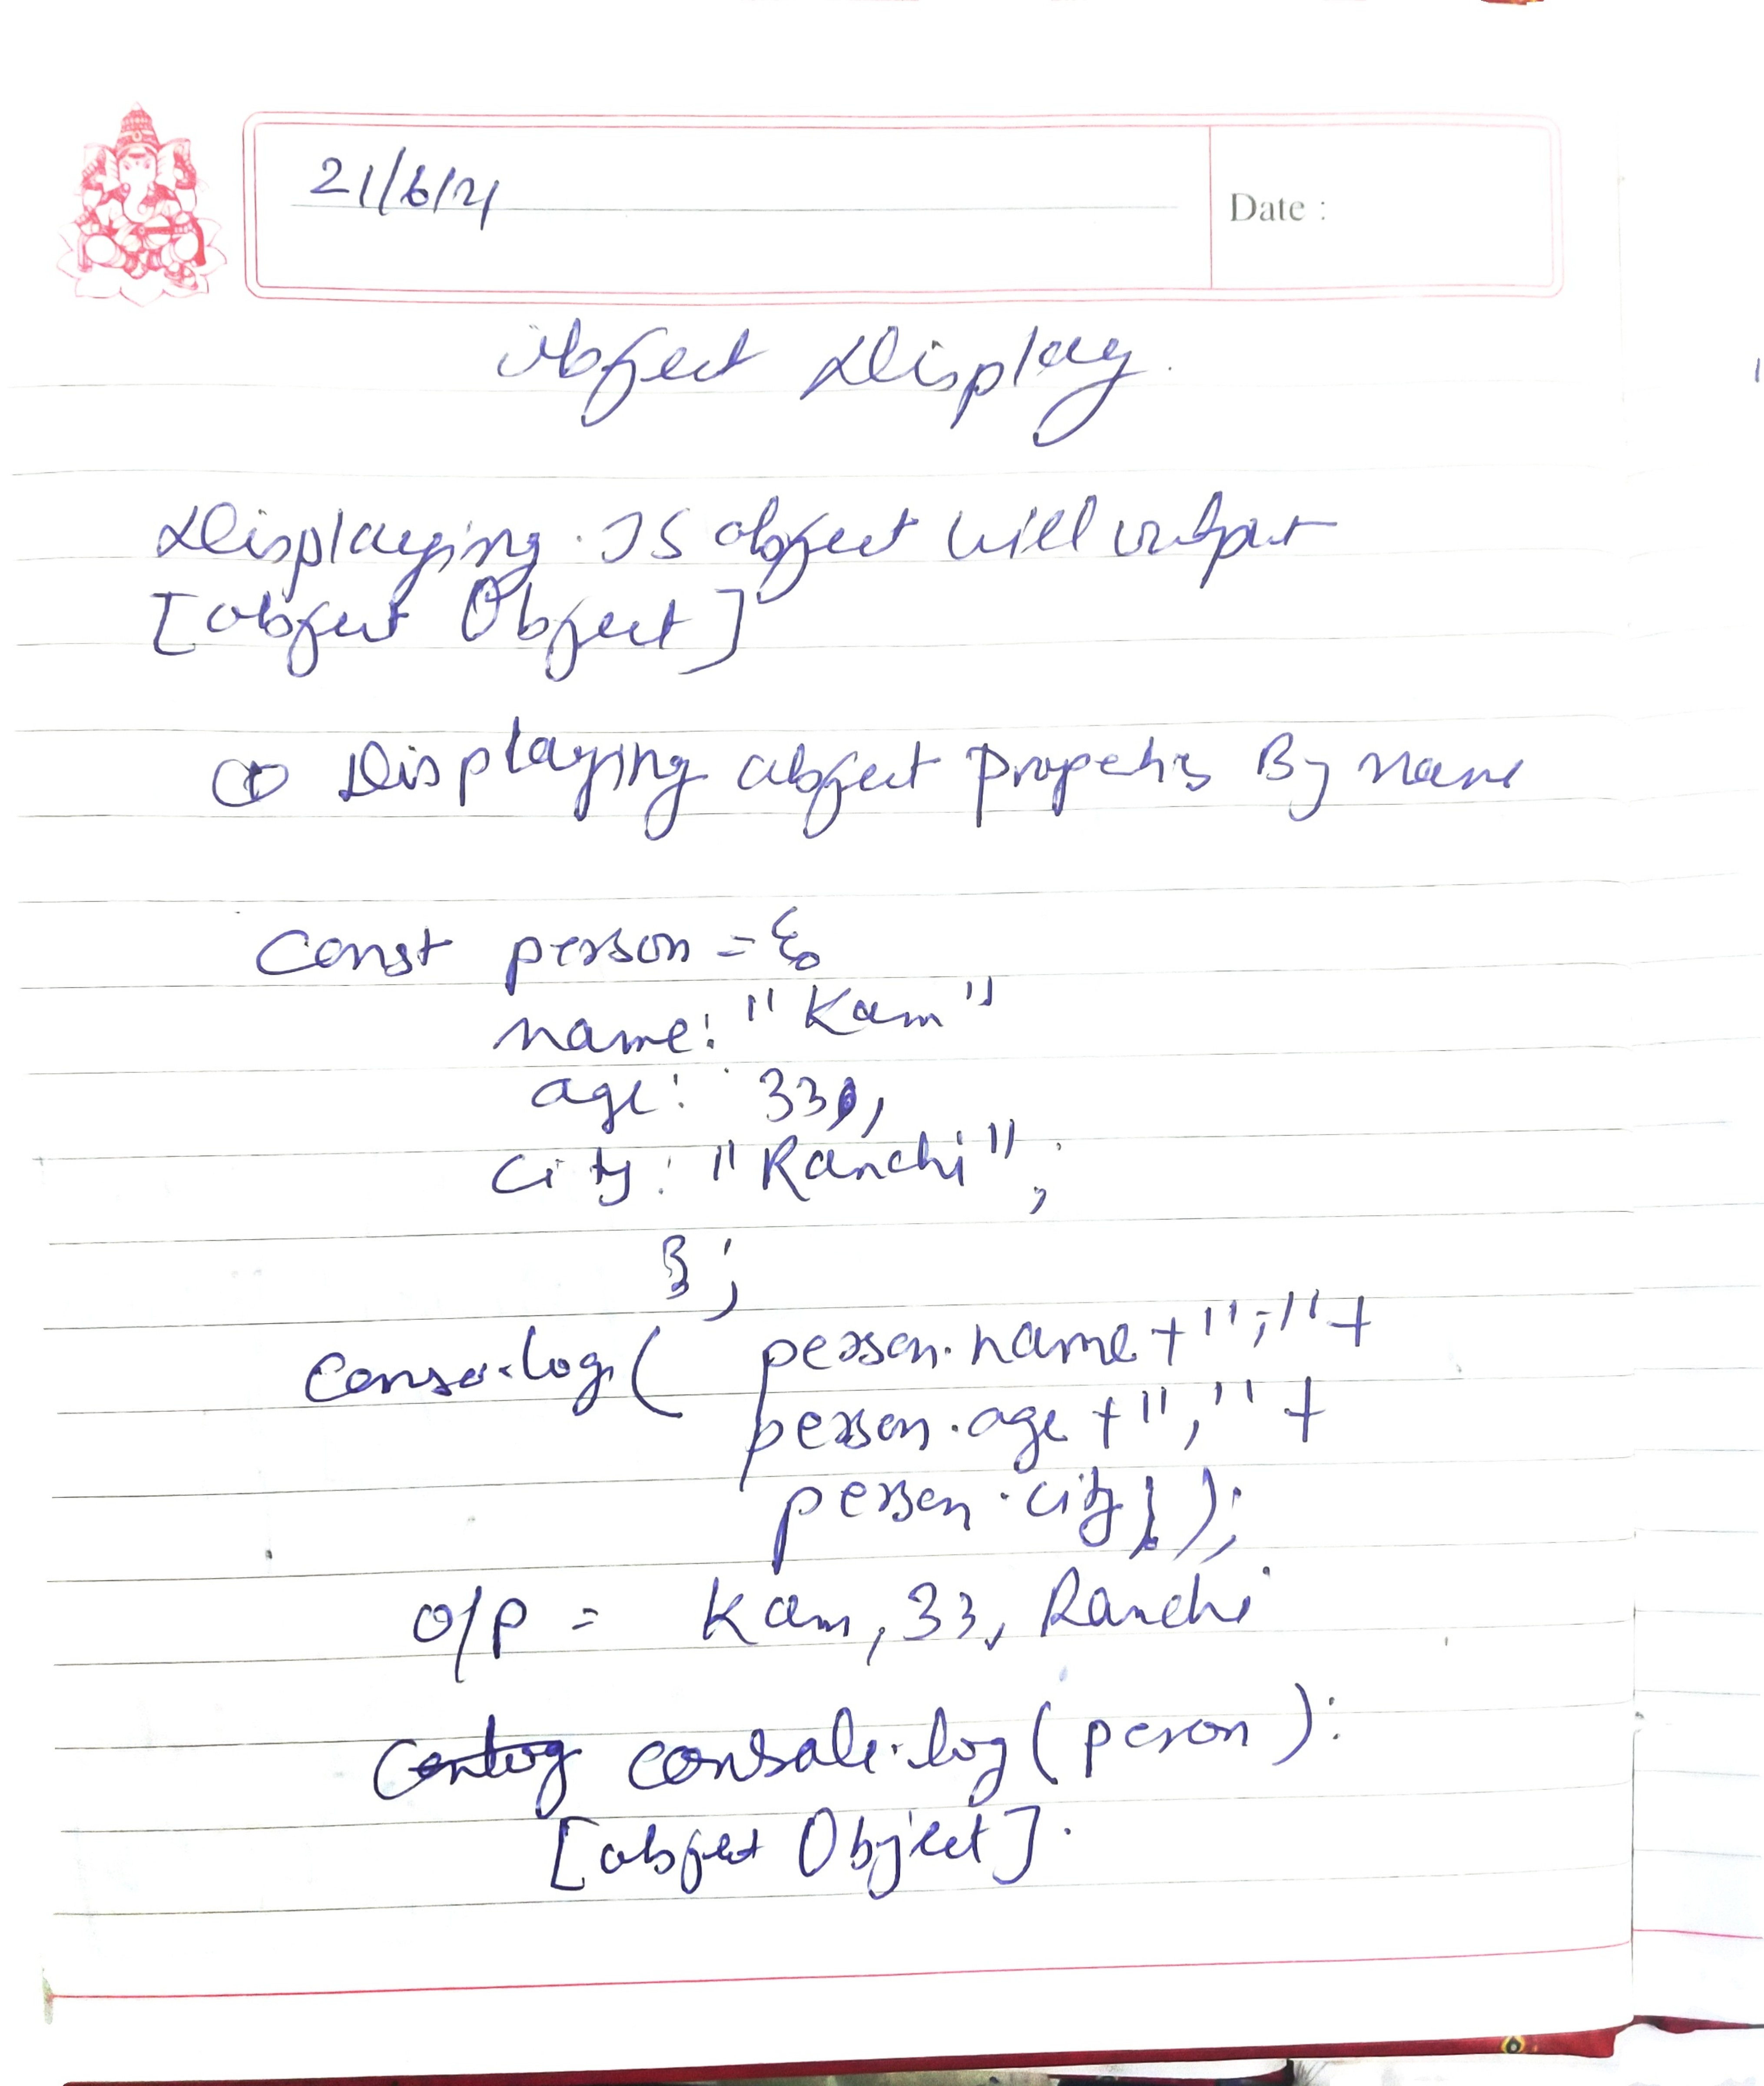 21/6/21
Date :
Object Display.
Displaying JS object will output
[object Object]
① Displaying object Properties By name
Const person = {
name: "Kam"
age: 33,
city: "Ranchi",
};
conso.log( person.name + "," +
person.age + "," +
person.city );
O/P = Kam, 33, Ranchi
console.log(peron);
[object Object].